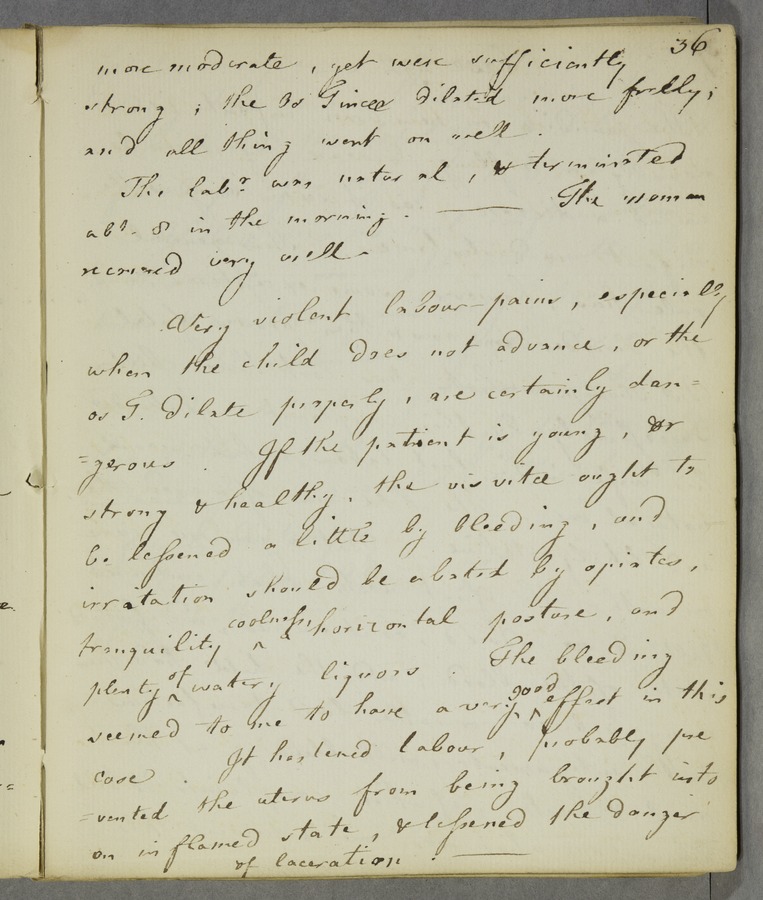 36
more moderate, yet were sufficiently
strong; the Os Tincæ dilated more freely;
and all thing went on well.
The labr. was natural, & terminated
abt. 8 in the morning. — The woman
recovered very well.
Very violent labour-pains, especially
when the child does not advance, or the
os T. dilate properly, are certainly dan=
=gerous. If the patient is young, or
strong & healthy, the vis vitæ ought to
be lessened a little by bleeding, and
irritation should be abated by opiates,
tranquility ^ coolness, a horizontal posture, and
plenty ^ of watery liquors. The bleeding
seemed to me to have a very ^ good effect in this
case. It hastened labour, probably pre
=vented the uterus from being brought into
an inflamed state, & lessened the danger
of laceration. —